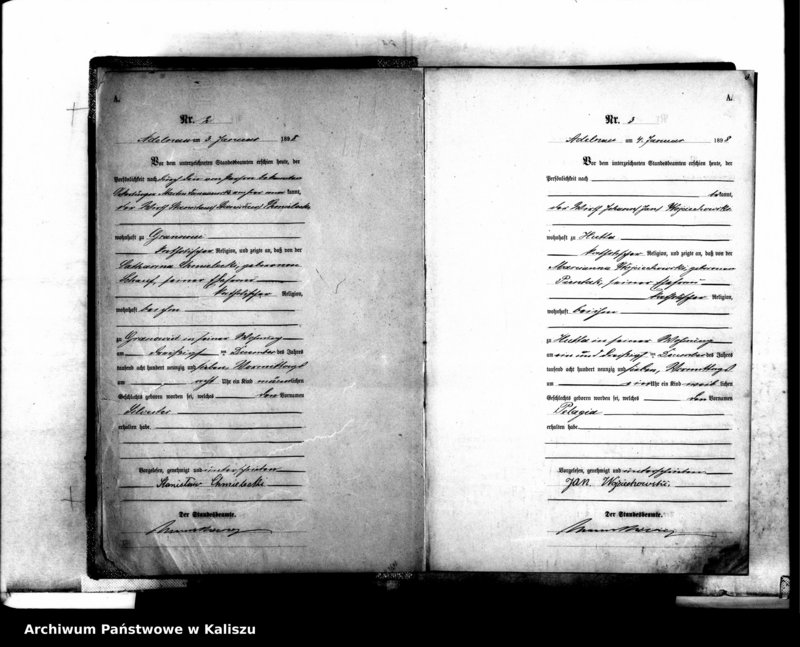 A.
Nr. 2
Adelnau am 3. Januar 1898
Vor dem unterzeichneten Standesbeamten erschien heute, der
Persönlichkeit nach
kannt,
der Wirth
wohnhaft zu Granowiec
katholischer Religion, und zeigte an, daß von der
Katharina Chmielecki, geborenen
seiner Ehefrau
katholischer Religion,
wohnhaft bei ihm
zu Granowiec in seiner Wohnung
am dreißigsten Dezember des Jahres
tausend acht hundert neunzig und sieben, Vormittags
um acht Uhr ein Kind männlichen
Geschlechts geboren worden sei, welches den Vornamen
Silvester
erhalten habe.
Vorgelesen, genehmigt und unterschrieben
Stanisław Chmielecki
Der Standesbeamte.
A.
Nr. 3
Adelnau am 4. Januar 1898
Vor dem unterzeichneten Standesbeamten erschien heute, der
Persönlichkeit nach
bekannt,
der Wirth Johann Jan Wojciechowski
wohnhaft zu Hutta
katholischer Religion, und zeigte an, daß von der
Marianna Wojciechowski, geborenen
seiner Ehefrau
katholischer Religion,
wohnhaft bei ihm
zu Hutta in seiner Wohnung
am ein und dreißigsten Dezember des Jahres
tausend acht hundert neunzig und sieben, Vormittags
um vier Uhr ein Kind weiblichen
Geschlechts geboren worden sei, welches den Vornamen
Pelagia
erhalten habe.
Vorgelesen, genehmigt und unterschrieben
Jan Wojciechowski.
Der Standesbeamte.
Archiwum Państwowe w Kaliszu